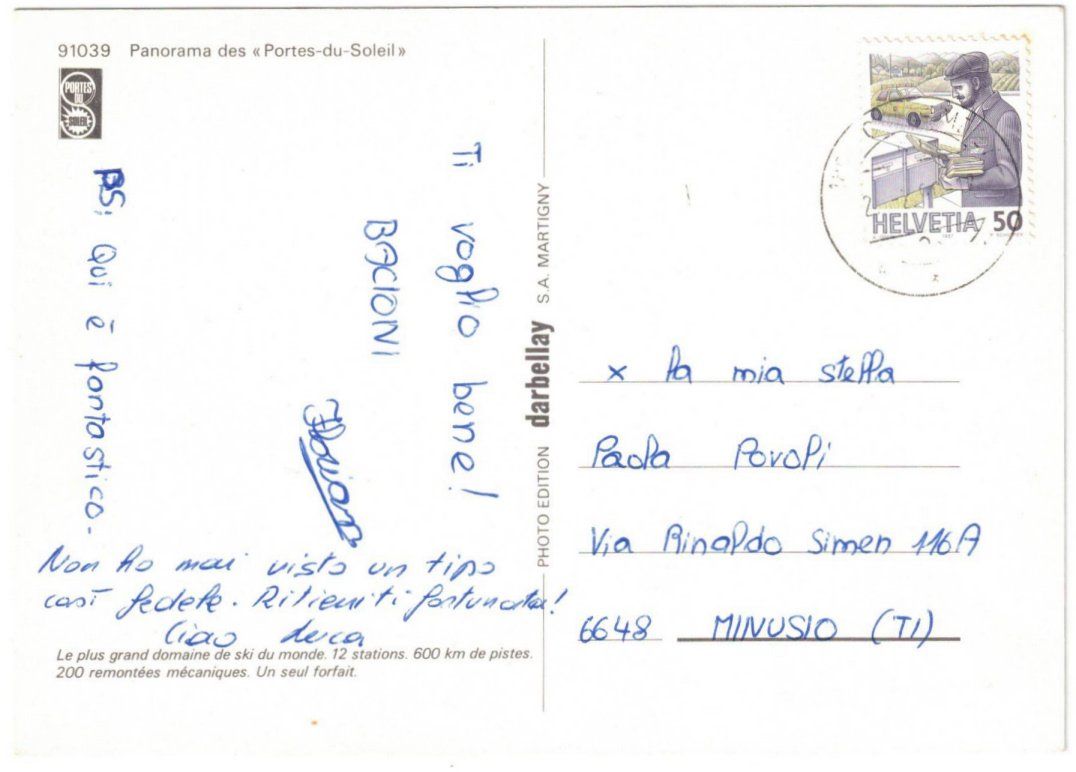 91039 Panorama des «Portes-du-Soleil»
PORTES
DU
SOLEIL
Ti voglio bene!
BACIONI
PS: Qui è fantastico.
Non ho mai visto un tipo
così fedele. Ritieniti fortunata!
Ciao Luca
Le plus grand domaine de ski du monde. 12 stations. 600 km de pistes.
200 remontées mécaniques. Un seul forfait.
PHOTO EDITION darbellay S.A. MARTIGNY
HELVETIA 50
x la mia stella
Paola Povoli
Via Rinaldo Simen 116A
6648 MINUSIO (TI)